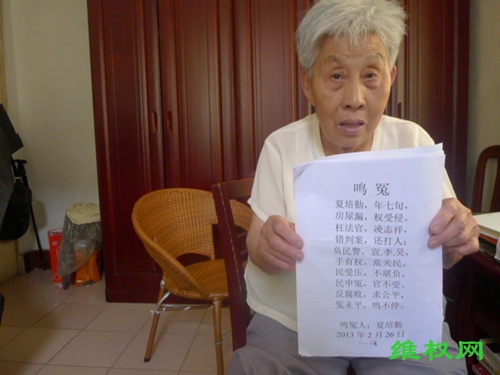 鸣 冤
夏培勤，年七旬，
房屋漏，权受侵。
枉法官，凌志祥，
错判案，还打人；
负民警，宣.李.吴，
手有权，乱关民。
民受压，不堪负，
民申冤，官不受。
反腐败，求公平，
冤未平，鸣不停。
鸣冤人：夏培勤
2013 年 2 月 26 日
维权网